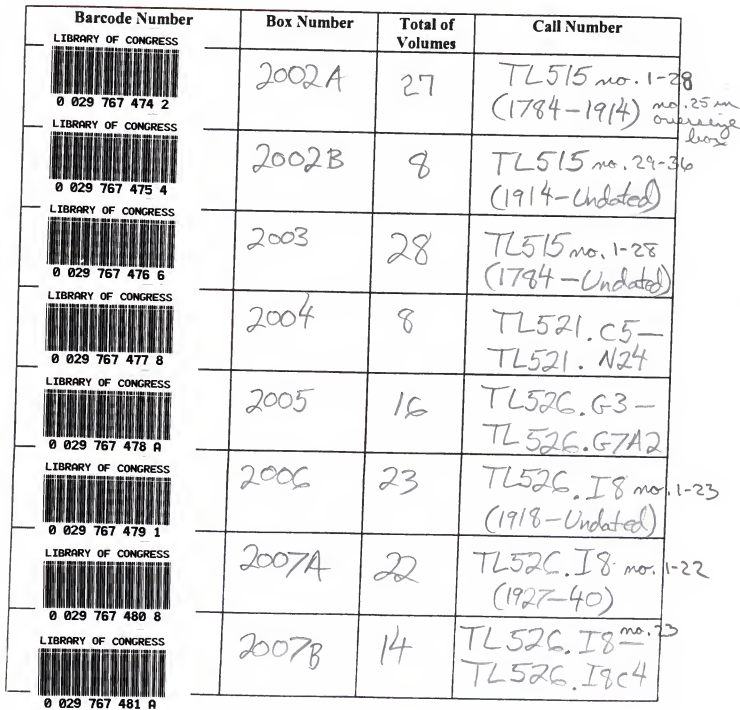 Barcode Number Box Number Total of Volumes Call Number
LIBRARY OF CONGRESS
0 029 767 474 2
2002A
27
TL515 no. 1-28
(1784-1914) no. 25 in
oversize
box
LIBRARY OF CONGRESS
0 029 767 475 4
2002B
8
TL515 no. 29-36
(1914-Undated)
LIBRARY OF CONGRESS
0 029 767 476 6
2003
28
TL515 no. 1-28
(1784-Undated)
LIBRARY OF CONGRESS
0 029 767 477 8
2004
8
TL521.C5-
TL521.N24
LIBRARY OF CONGRESS
0 029 767 478 A
2005
16
TL526.G3-
TL526.G7A2
LIBRARY OF CONGRESS
0 029 767 479 1
2006
23
TL526.I8 no. 1-23
(1918-Undated)
LIBRARY OF CONGRESS
0 029 767 480 8
2007A
22
TL526.I8 no. 1-22
(1927-40)
LIBRARY OF CONGRESS
0 029 767 481 A
2007B
14
TL526.I8 no. 23-
TL526.I8C4